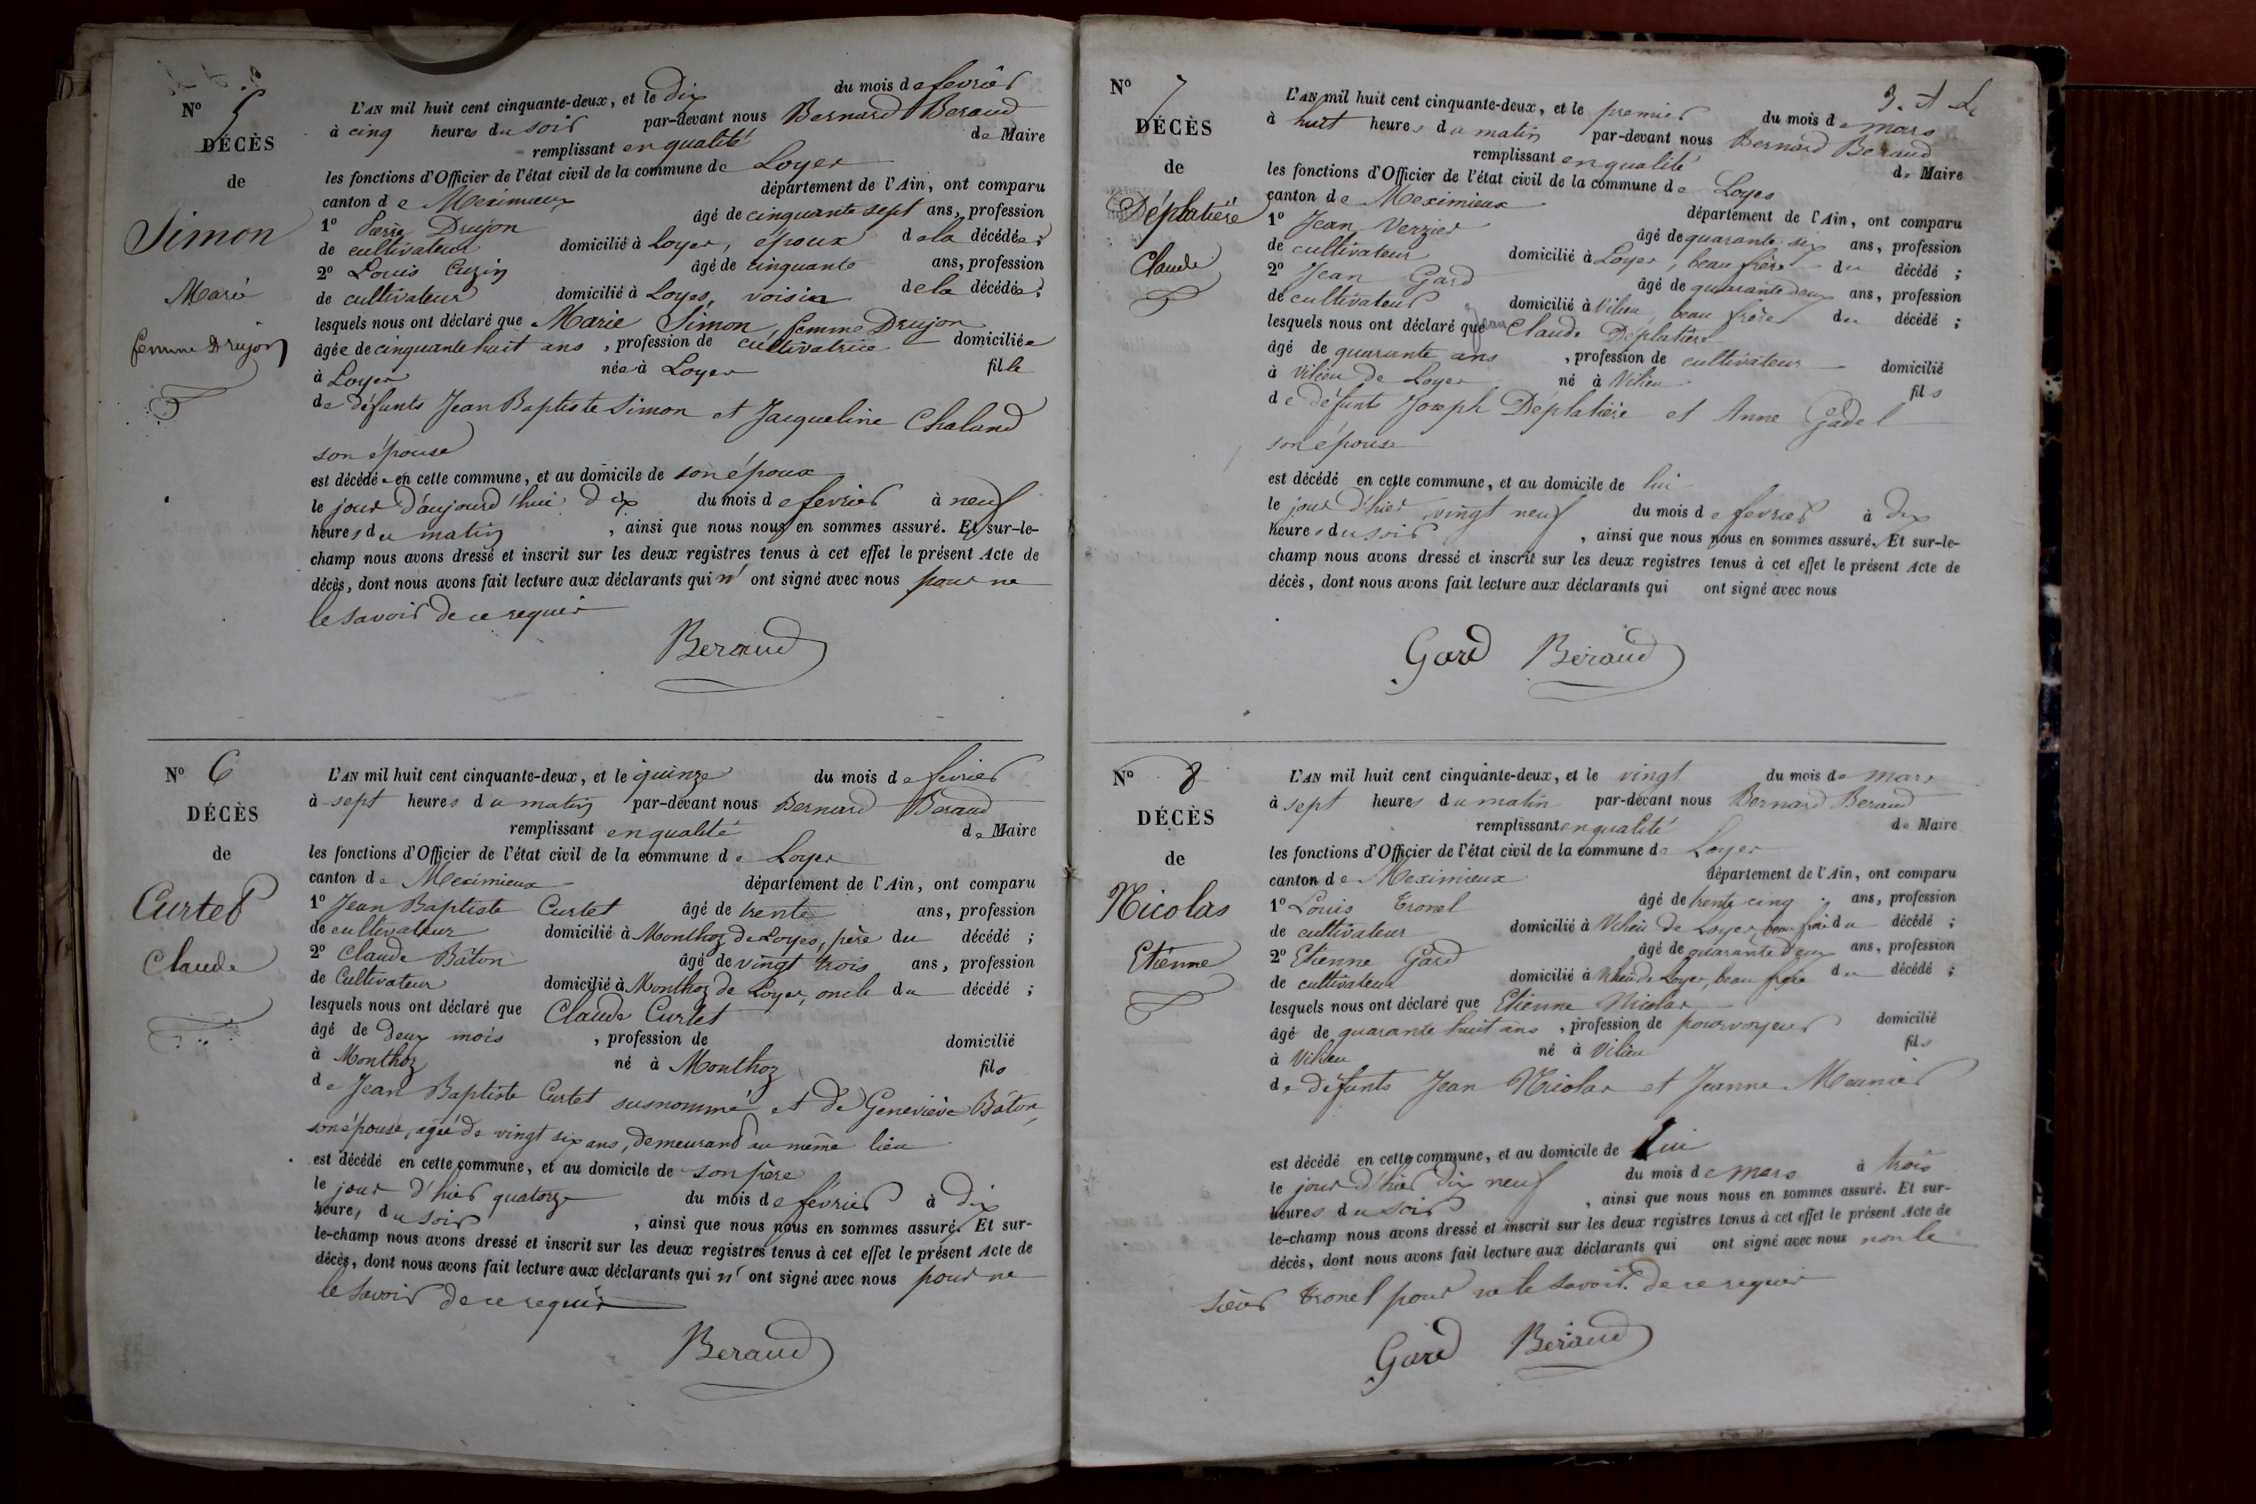 N° 5
DÉCÈS
de
Simon
Marie
femme Drujon
L'AN mil huit cent cinquante-deux, et le dix du mois de fevrier
à cinq heures du soir par-devant nous Bernard Beraud
remplissant en qualité de Maire
les fonctions d'Officier de l'état civil de la commune de Loyes
canton de Meximieux département de l'Ain, ont comparu
1° Pierre Drujon âgé de cinquante sept ans, profession
de cultivateur domicilié à Loyes, époux de la décédée;
2° Louis Cuzin âgé de cinquante ans, profession
de cultivateur domicilié à Loyes, voisin de la décédée;
lesquels nous ont déclaré que Marie Simon, femme Drujon
âgée de cinquante huit ans, profession de cultivatrice domiciliée
à Loyes née à Loyes fille
de défunts Jean Baptiste Simon et Jacqueline Chaland
son épouse
est décédée en cette commune, et au domicile de son époux
le jour d'aujourd'hui dix du mois de fevrier à neuf
heures du matin, ainsi que nous nous en sommes assuré. Et sur-le-
champ nous avons dressé et inscrit sur les deux registres tenus à cet effet le présent Acte de
décès, dont nous avons fait lecture aux déclarants qui n'ont signé avec nous pour ne
le savoir de ce requis
Beraud
N° 6
DÉCÈS
de
Curtet
Claude
L'AN mil huit cent cinquante-deux, et le quinze du mois de fevrier
à sept heures du matin par-devant nous Bernard Beraud
remplissant en qualité de Maire
les fonctions d'Officier de l'état civil de la commune de Loyes
canton de Meximieux département de l'Ain, ont comparu
1° Jean Baptiste Curtet âgé de trente ans, profession
de cultivateur domicilié à Monthoz de Loyes, père du décédé;
2° Claude Bâton âgé de vingt trois ans, profession
de Cultivateur domicilié à Monthoz de Loyes, oncle du décédé;
lesquels nous ont déclaré que Claude Curtet
âgé de deux mois, profession de domicilié
à Monthoz né à Monthoz fils
de Jean Baptiste Curtet susnommé et de Geneviève Bâton,
son épouse, agée de vingt six ans, demeurant au même lieu
est décédé en cette commune, et au domicile de son père
le jour d'hier quatorze du mois de février à dix
heures du soir, ainsi que nous nous en sommes assuré. Et sur-
le-champ nous avons dressé et inscrit sur les deux registres tenus à cet effet le présent Acte de
décès, dont nous avons fait lecture aux déclarants qui n'ont signé avec nous pour ne
le savoir de ce requis
Beraud
3.
N° 7
DÉCÈS
de
Déplatière
Claude
L'AN mil huit cent cinquante-deux, et le premier du mois de mars
à huit heures du matin par-devant nous Bernard Beraud
remplissant en qualité de Maire
les fonctions d'Officier de l'état civil de la commune de Loyes
canton de Meximieux département de l'Ain, ont comparu
1° Jean Verzier âgé de quarante six ans, profession
de cultivateur domicilié à Loyes, beau frère du décédé;
2° Jean Gard âgé de quarante deux ans, profession
de cultivateur domicilié à Vilieu, beau frère du décédé;
lesquels nous ont déclaré que Jean Claude Déplatière
âgé de quarante ans, profession de cultivateur domicilié
à Vilieu de Loyes né à Vilieu fils
de défunts Joseph Déplatière et Anne Gadel
son épouse
est décédé en cette commune, et au domicile de lui
le jour d'hier vingt neuf du mois de fevrier à dix
heures du soir, ainsi que nous nous en sommes assuré. Et sur-le-
champ nous avons dressé et inscrit sur les deux registres tenus à cet effet le présent Acte de
décès, dont nous avons fait lecture aux déclarants qui ont signé avec nous
Gard Béraud
N° 8
DÉCÈS
de
Nicolas
Etienne
L'AN mil huit cent cinquante-deux, et le vingt du mois de mars
à sept heures du matin par-devant nous Bernard Beraud
remplissant en qualité de Maire
les fonctions d'Officier de l'état civil de la commune de Loyes
canton de Meximieux département de l'Ain, ont comparu
1° Louis Tronel âgé de trente cinq ans, profession
de cultivateur domicilié à Vilieu de Loyes, beau frère du décédé;
2° Etienne Gard âgé de quarante deux ans, profession
de cultivateur domicilié à Vilieu de Loyes, beau frère du décédé;
lesquels nous ont déclaré que Etienne Nicolas
âgé de quarante huit ans, profession de pourvoyeur domicilié
à Vilieu né à Vilieu fils
de défunts Jean Nicolas et Jeanne Meunier
est décédé en cette commune, et au domicile de lui
le jour d'hier dix neuf du mois de mars à trois
heures du soir, ainsi que nous nous en sommes assuré. Et sur-
le-champ nous avons dressé et inscrit sur les deux registres tenus à cet effet le présent Acte de
décès, dont nous avons fait lecture aux déclarants qui ont signé avec nous non le
sieur Tronel pour ne le savoir. de ce requis
Gard Béraud